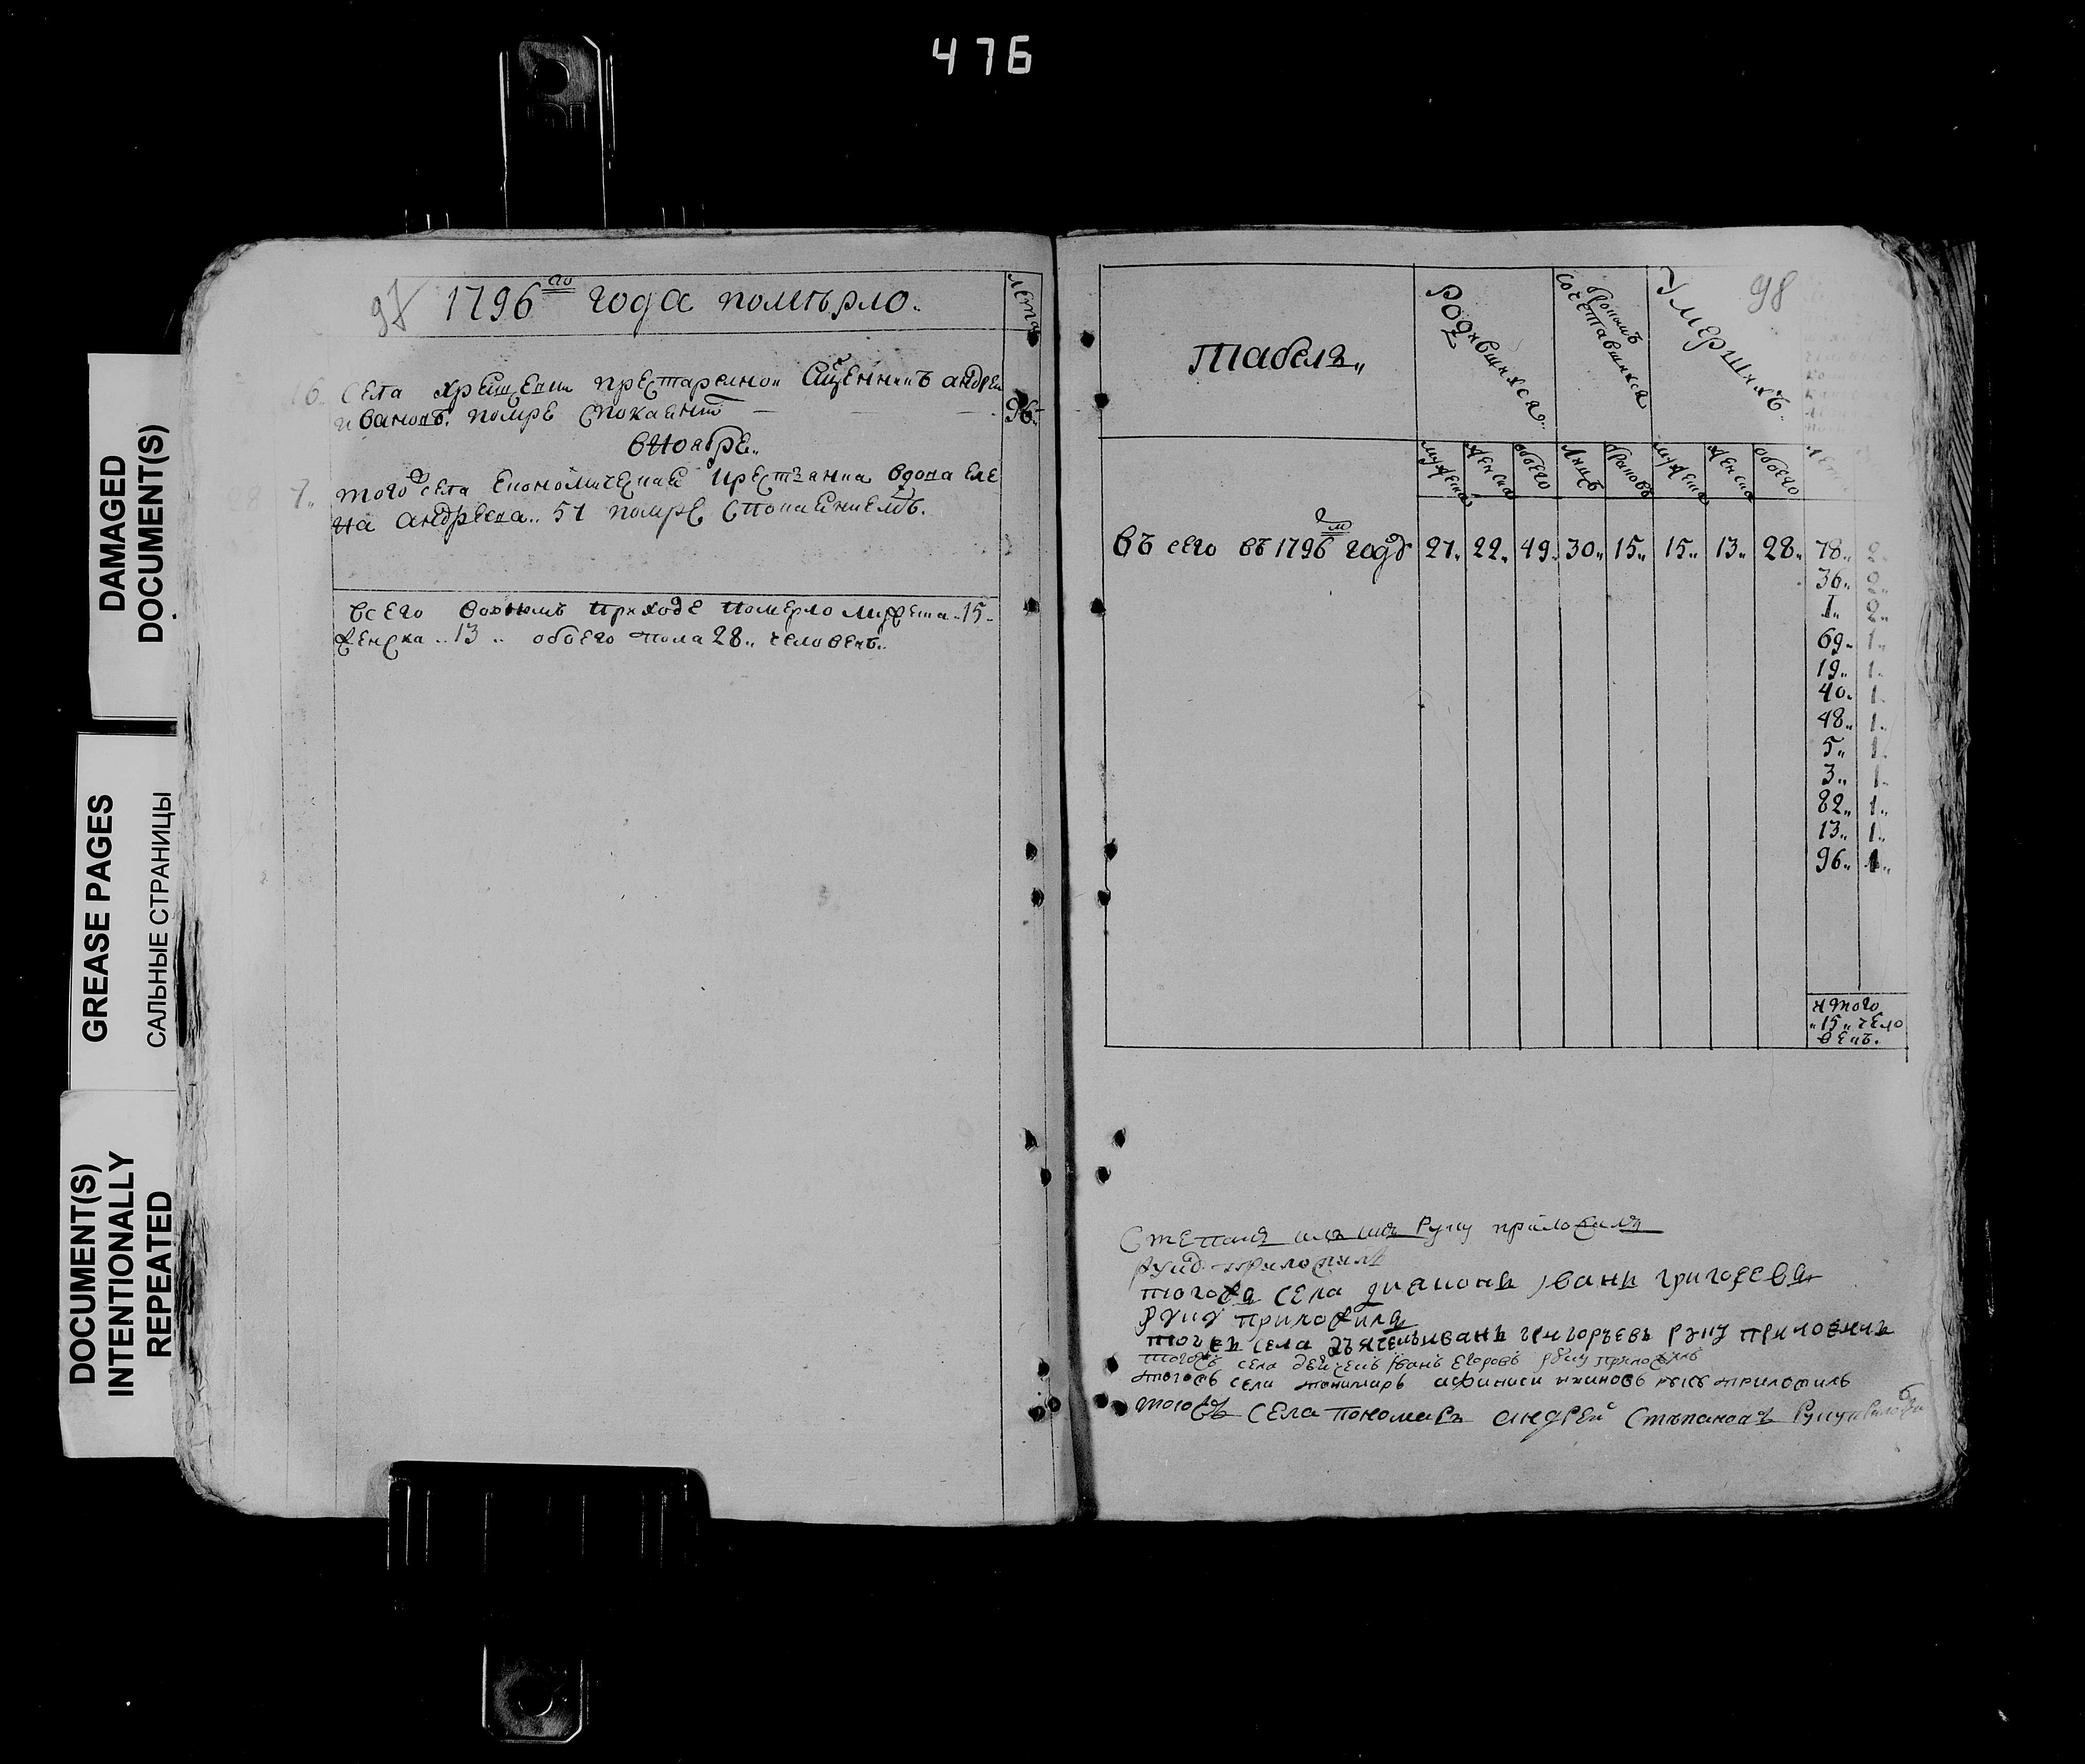 476
DAMAGED
DOCUMENT(S)
GREASE PAGES
САЛЬНЫЕ СТРАНИЦЫ
DOCUMENT(S)
INTENTIONALLY
REPEATED
97
1796 го года помѣрло.
лета
16. села престарелной Сщенникъ андреи
ивановъ помре спокаениѣ
96.
вноабре..
7.. того села економическая крестьянка вдова еле
на андреева.. 51 помре спокаениемъ.
всего воономъ приходе померло мужеска..15..
женска..13.. обоего пола 28.. человекъ..
98
табель..
родившихса..
бракомъ сочетавшихса
умершихъ.
мужеска
женска
обоего
лицъ
браковъ
мужеска
женска
обоего
лета
въ сего въ 1796 м годꙋ 27.. 22.. 49. 30.. 15.. 15.. 13.. 28.. 78.. 2..
36.. 2..
1.. 2..
69.. 1..
19.. 1.
40.. 1.
48.. 1.
5.. 1.
3.. 1.
82.. 1..
13.. 1..
96.. 1..
итого
..15.. чело
векъ.
руку приложилъ
тогожъ села диаконъ іванъ григорьевъ
рꙋкꙋ приложилъ
тогожъ села дьячекъ иванъ григоръевъ рꙋкꙋ приложилъ
тогожъ села іванъ егоровъ рꙋкꙋ приложилъ
тогожъ села пономарь афанаси руку приложилъ
тогожъ села пономарь андрей стѣпановъ руку приложи